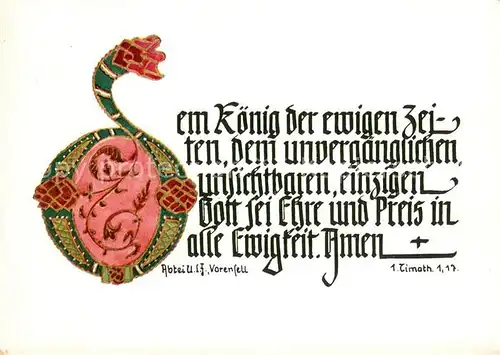 Dem König der ewigen Zei-
ten, dem unvergänglichen,
unsichtbaren, einzigen
Gott sei Ehre und Preis in
alle Ewigkeit. Amen
Abtei U.l.F., Varensell
1. Timoth. 1, 17.